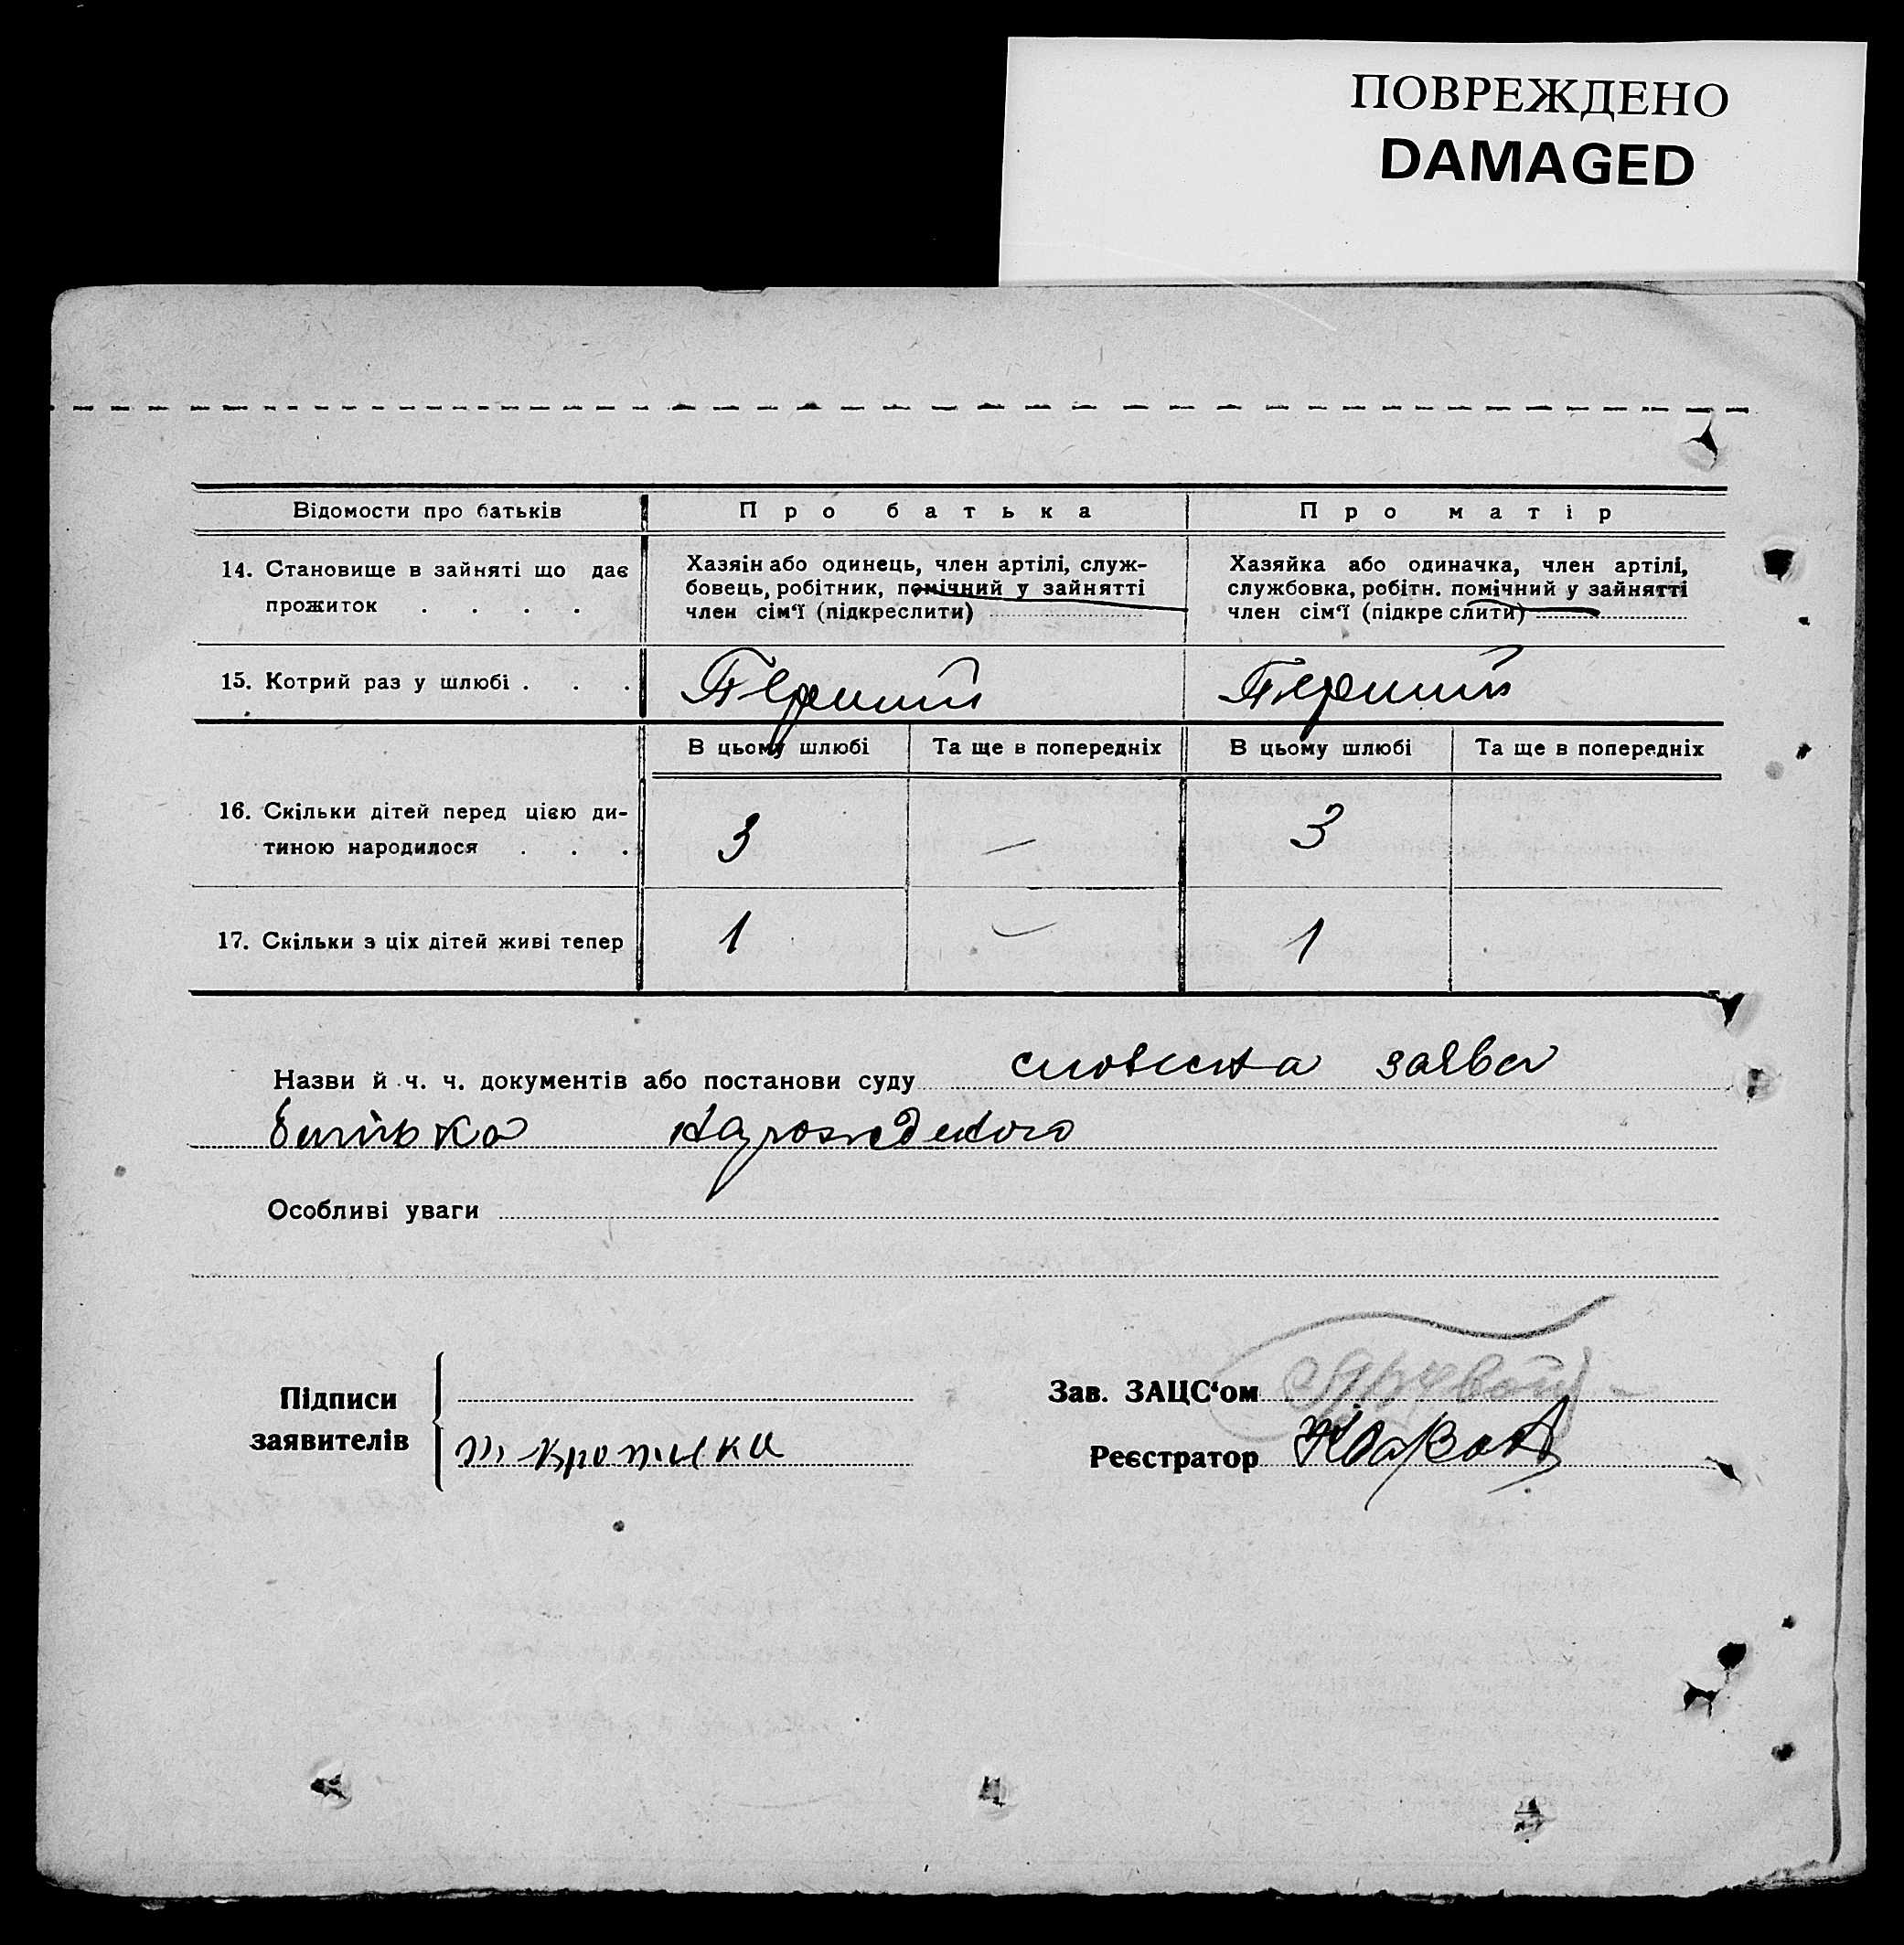 ПОВРЕЖДЕНО
DAMAGED
Відомости про батьків
Про батька
Про матір
14. Становище в зайняті що дає
прожиток . . . .
Хазяін або одинець, член артілі, служ-
бовець, робітник, помічний у зайнятті
член сім‘ї (підкреслити)
Хазяйка або одиначка, член артілі,
службовка, робітн. помічний у зайнятті
член сім‘ї (підкреслити)
15. Котрий раз у шлюбі . . .
Перший
Перший
В цьому шлюбі
Та ще в попередніх
В цьому шлюбі
Та ще в попередніх
16. Скільки дітей перед цією ди-
тиною народилося . . .
3
—
3
17. Скільки з ціх дітей живі тепер
1
—
1
Назви й ч. ч. документів або постанови суду словесна заява
батька
Особливі уваги
Підписи
заявителів
Зав. ЗАЦС‘ом
Реєстратор